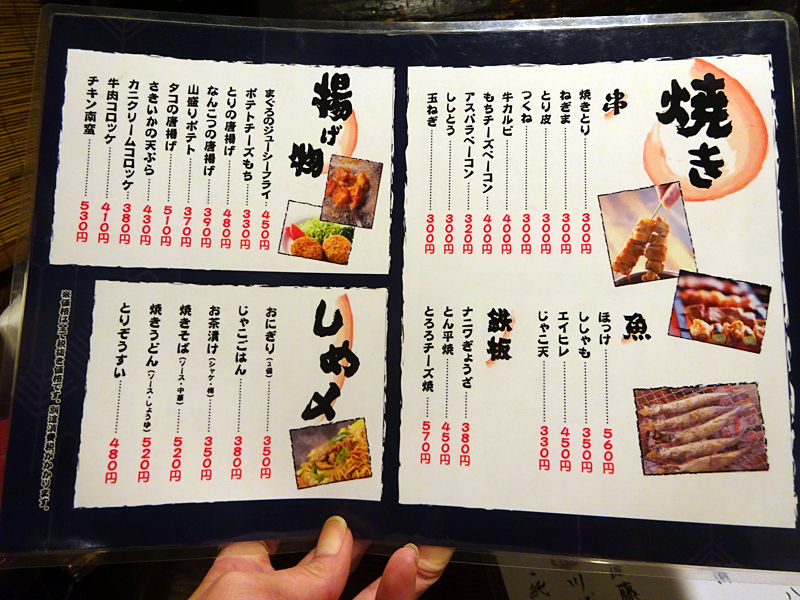 焼き
串
焼きとり 300円
ねぎま 300円
とり皮 300円
つくね 300円
牛カルビ 400円
もちチーズベーコン 400円
アスパラベーコン 320円
ししとう 300円
玉ねぎ 300円
魚
ほっけ 560円
ししゃも 350円
エイヒレ 450円
じゃこ天 330円
鉄板
ナニワぎょうざ 380円
とん平焼 450円
とろろチーズ焼 570円
揚げ物
まぐろのジューシーフライ 450円
ポテトチーズもち 330円
とりの唐揚げ 480円
なんこつの唐揚げ 390円
山盛りポテト 370円
タコの唐揚げ 510円
さきいかの天ぷら 430円
カニクリームコロッケ 380円
牛肉コロッケ 410円
チキン南蛮 530円
しめ
おにぎり(2個) 350円
じゃこごはん 380円
お茶漬け(シャケ・梅) 350円
焼きそば(ソース・中華) 520円
焼うどん(ソース・しょうゆ) 520円
とりぞうすい 480円
※価格は全て税抜き価格です。別途消費税がかかります。